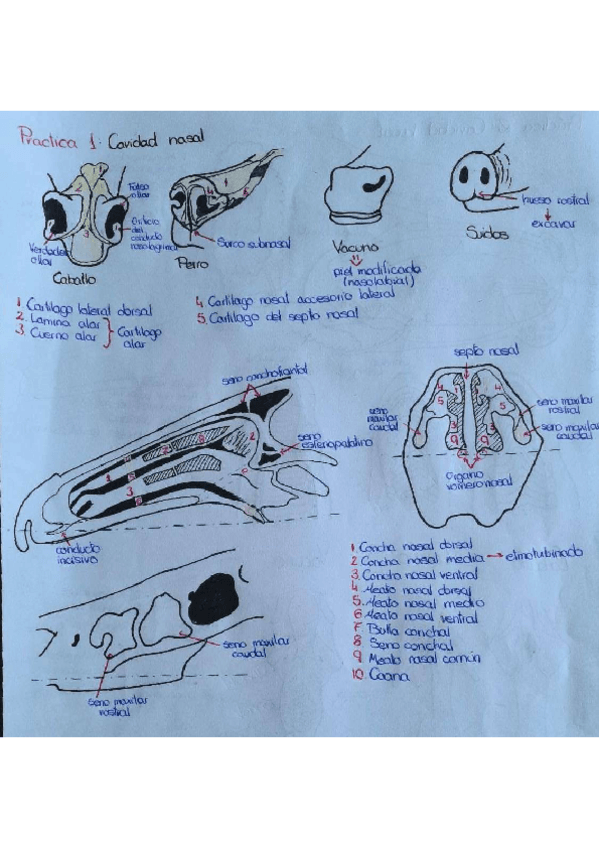 Práctica 1. Cavidad nasal
Falso ollar
Orificio del conducto nasolagrimal
Verdadero ollar
2
3
Caballo
4
1
5
Surco subnasal
Perro
Vacuno
piel modificada
(nasolabial)
hueso rostral
excavar
Suidos
1 Cartílago lateral dorsal
2. Lamina alar
3. Cuerno alar
Cartílago alar
4 Cartílago nasal accesorio lateral
5. Cartílago del septo nasal
seno conchofrontal
seno esfenopalatino
1
2
3
7
8
conducto incisivo
septo nasal
seno maxilar rostral
seno maxilar caudal
seno maxilar caudal
4
4
5
5
1
1
3
3
9
9
Organo vomeronasal
1. Concha nasal dorsal
2 Concha nasal media → etmoturbinado
3. Concha nasal ventral
4 Meato nasal dorsal
5. Meato nasal medio
6 Meato nasal ventral
7 Bulla conchal
8 Seno conchal
9 Meato nasal común
10 Coana
seno maxilar caudal
seno maxilar rostral